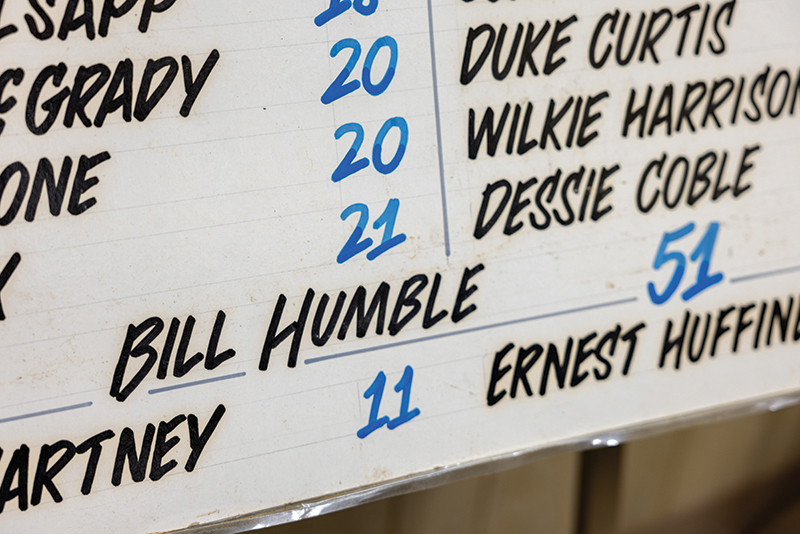 20
GRADY 20 DUKE CURTIS
ONE 20 WILKIE HARRISON
21 DESSIE COBLE
BILL HUMBLE 51
ARTNEY 11 ERNEST HUFFIN